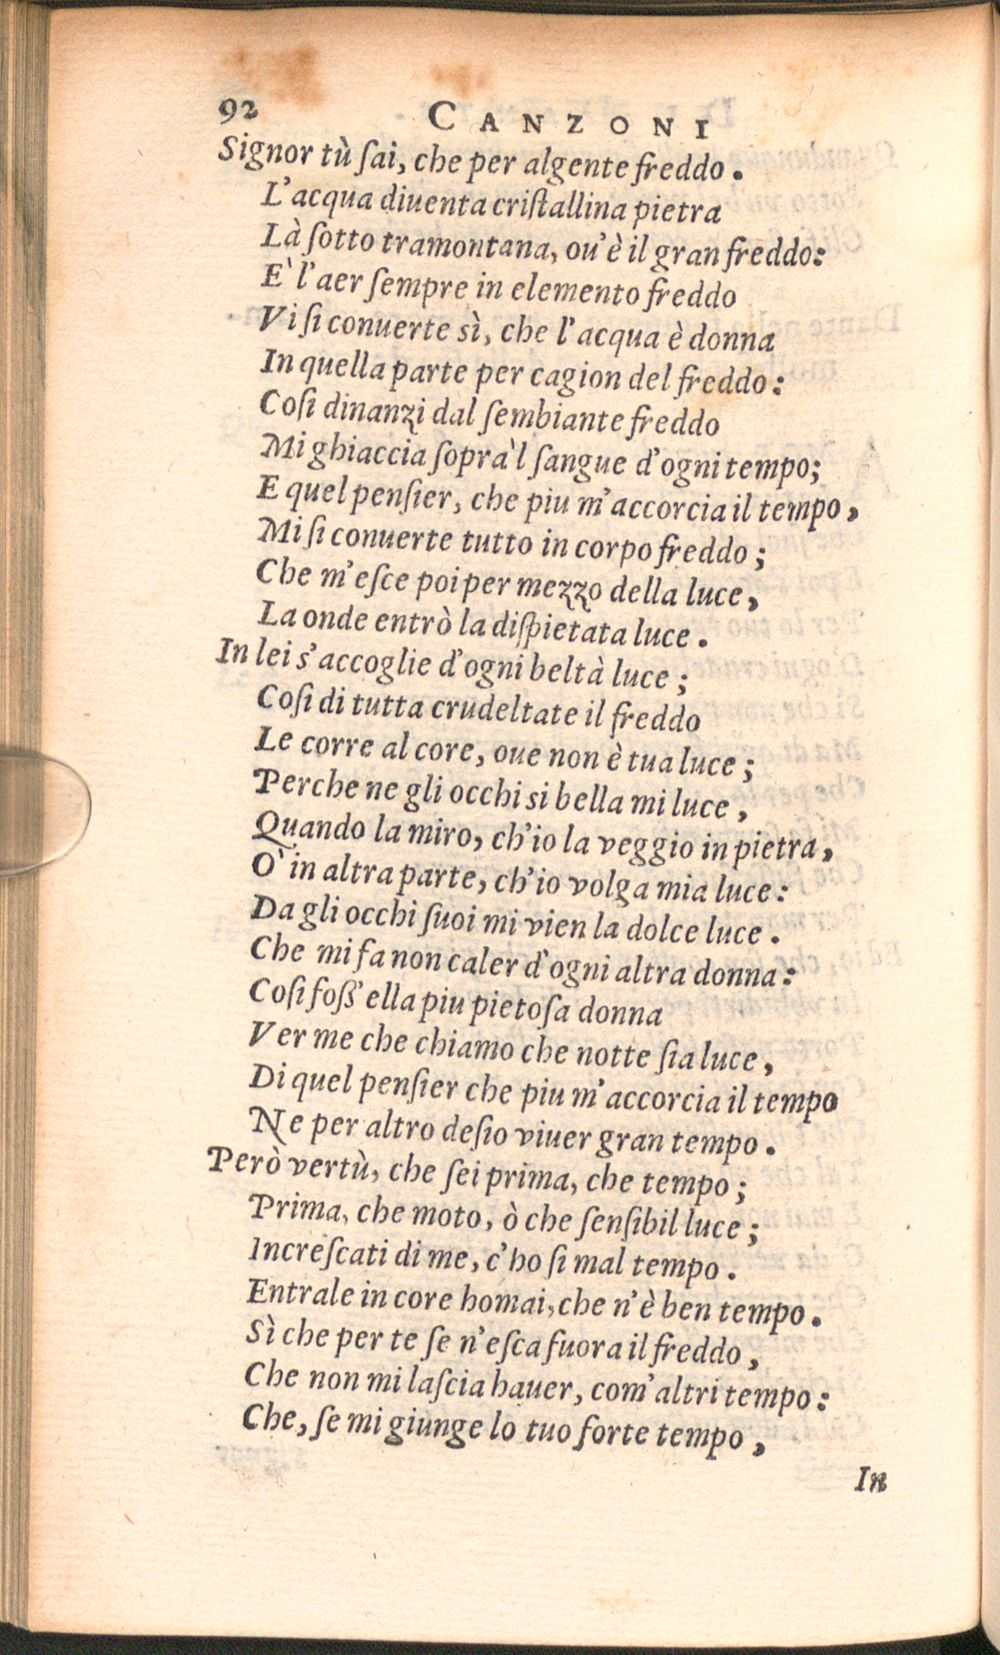 92 CANZONI
Signor tù ſai, che per algente freddo.
L'acqua diuenta criſtallina pietra
Là ſotto tramontana, ou'è il gran freddo:
E` l'aer ſempre in elemento freddo
Vi ſi conuerte sì, che l'acqua è donna
In quella parte per cagion del freddo:
Coſi dinanzi dal ſembiante freddo
Mi ghiaccia ſopra`l ſangue d'ogni tempo;
E quel penſier, che piu m'accorcia il tempo,
Mi ſi conuerte tutto in corpo freddo;
Che m'eſce poi per mezzo della luce,
La onde entrò la diſpietata luce.
In lei s'accoglie d'ogni beltà luce;
Coſi di tutta crudeltate il freddo
Le corre al core, oue non è tua luce;
Perche ne gli occhi si bella mi luce,
Quando la miro, ch'io la veggio in pietra,
O` in altra parte, ch'io volga mia luce:
Da gli occhi ſuoi mi vien la dolce luce.
Che mi fa non caler d'ogni altra donna:
Coſi foſſ'ella piu pietoſa donna
Ver me che chiamo che notte ſia luce,
Di quel penſier che piu m'accorcia il tempo
Ne per altro deſio viuer gran tempo.
Però vertù, che ſei prima, che tempo;
Prima, che moto, ò che ſenſibil luce;
Increſcati di me, c'ho ſi mal tempo.
Entrale in core homai, che n'è ben tempo.
Sì che per te ſe n'eſca fuora il freddo,
Che non mi laſcia hauer, com'altri tempo:
Che, ſe mi giunge lo tuo forte tempo,
In